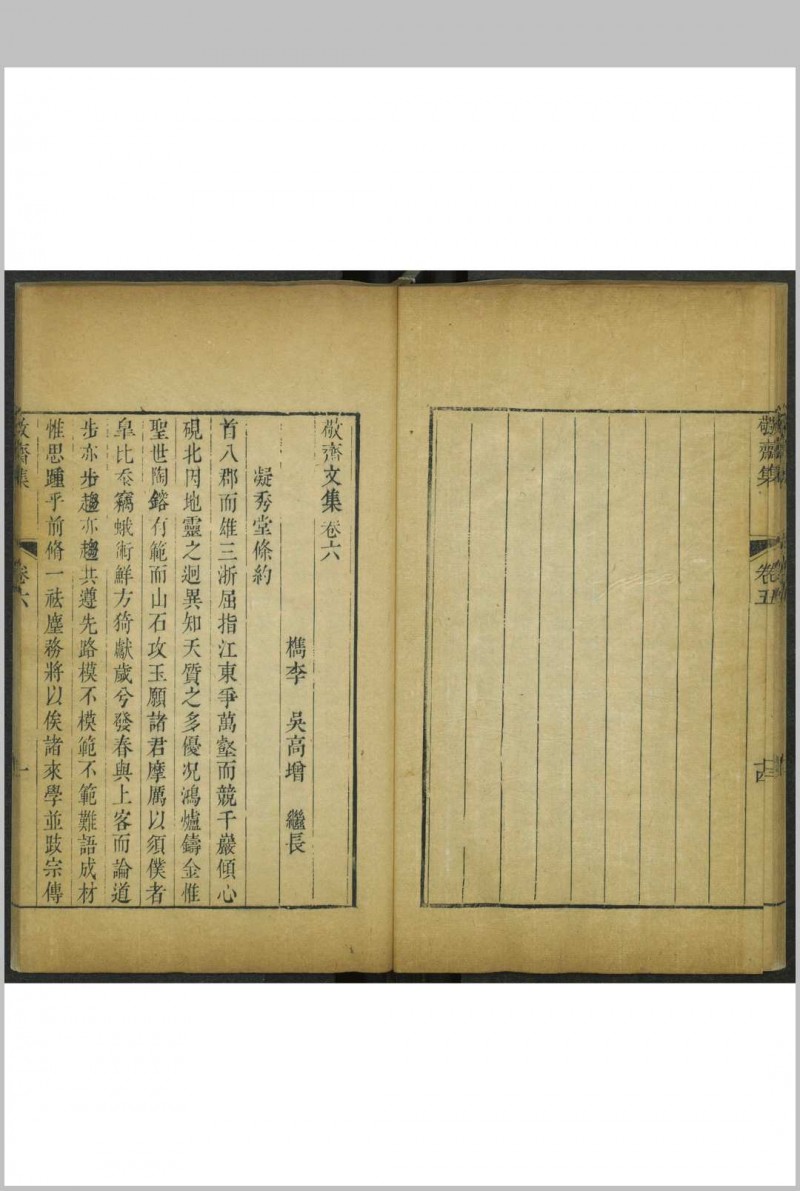 敬齋集
卷五
十四
敬齋文集卷六
檇李 吳高增 繼長
凝秀堂條約
首八郡而雄三浙屈指江東爭萬壑而競千巖傾心
硯北因地靈之迥異知天質之多優况鴻爐鑄金惟
聖世陶鎔有範而山石攻玉願諸君摩厲以須僕者
皐比忝竊蛾術鮮方猗獻歲兮發春與上客而論道
步亦步趨亦趨共遵先路模不模範不範難語成材
惟思踵乎前脩一祛塵務將以俟諸來學並跂宗傳
敬齋集
卷六
一